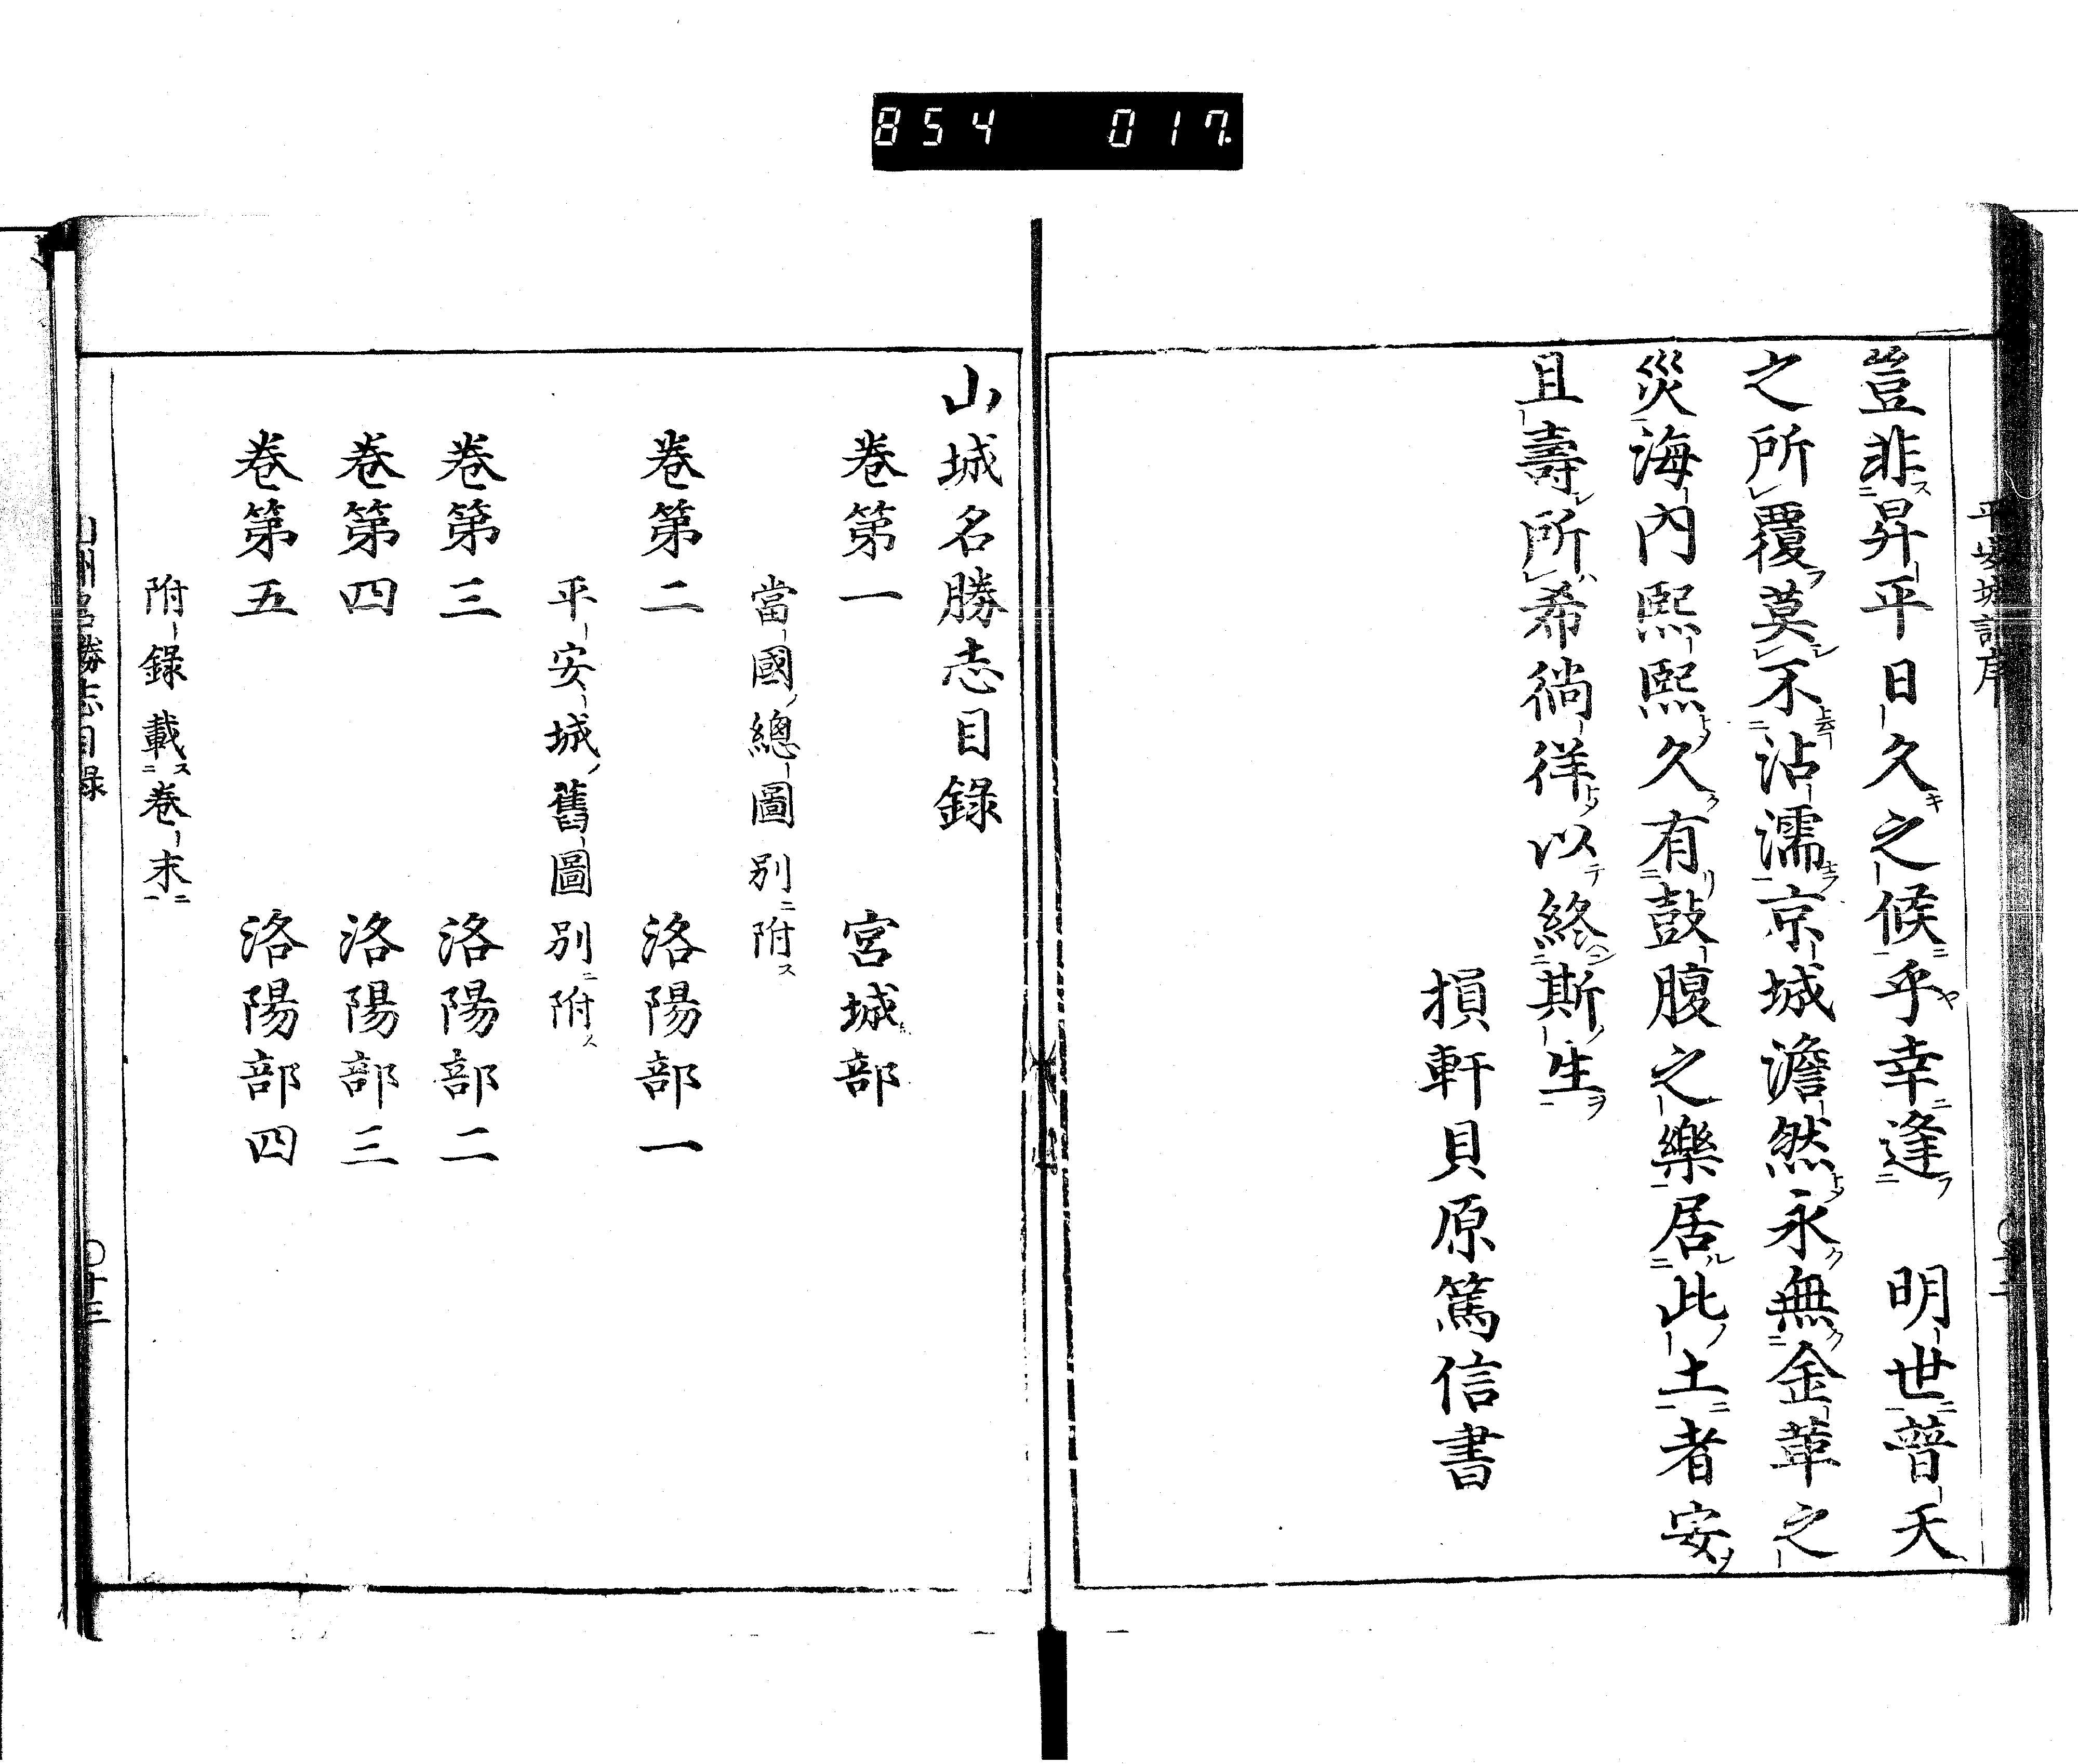 854 017
平安城記序
豈非昇平日久之候乎幸逢　明世普天
之所覆莫不沾濡京城澹然永無金革之
災海內熙熙久有鼓腹之樂居此土者安
且壽所希徜徉以終斯生
損軒貝原篤信書
山城名勝志目錄
卷第一　宮城部
當國ノ總圖別ニ附ス
卷第二　洛陽部一
平安城ノ舊圖別ニ附ス
卷第三　洛陽部二
卷第四　洛陽部三
卷第五　洛陽部四
附錄載ス卷末ニ
山州名勝志目録
〇十三